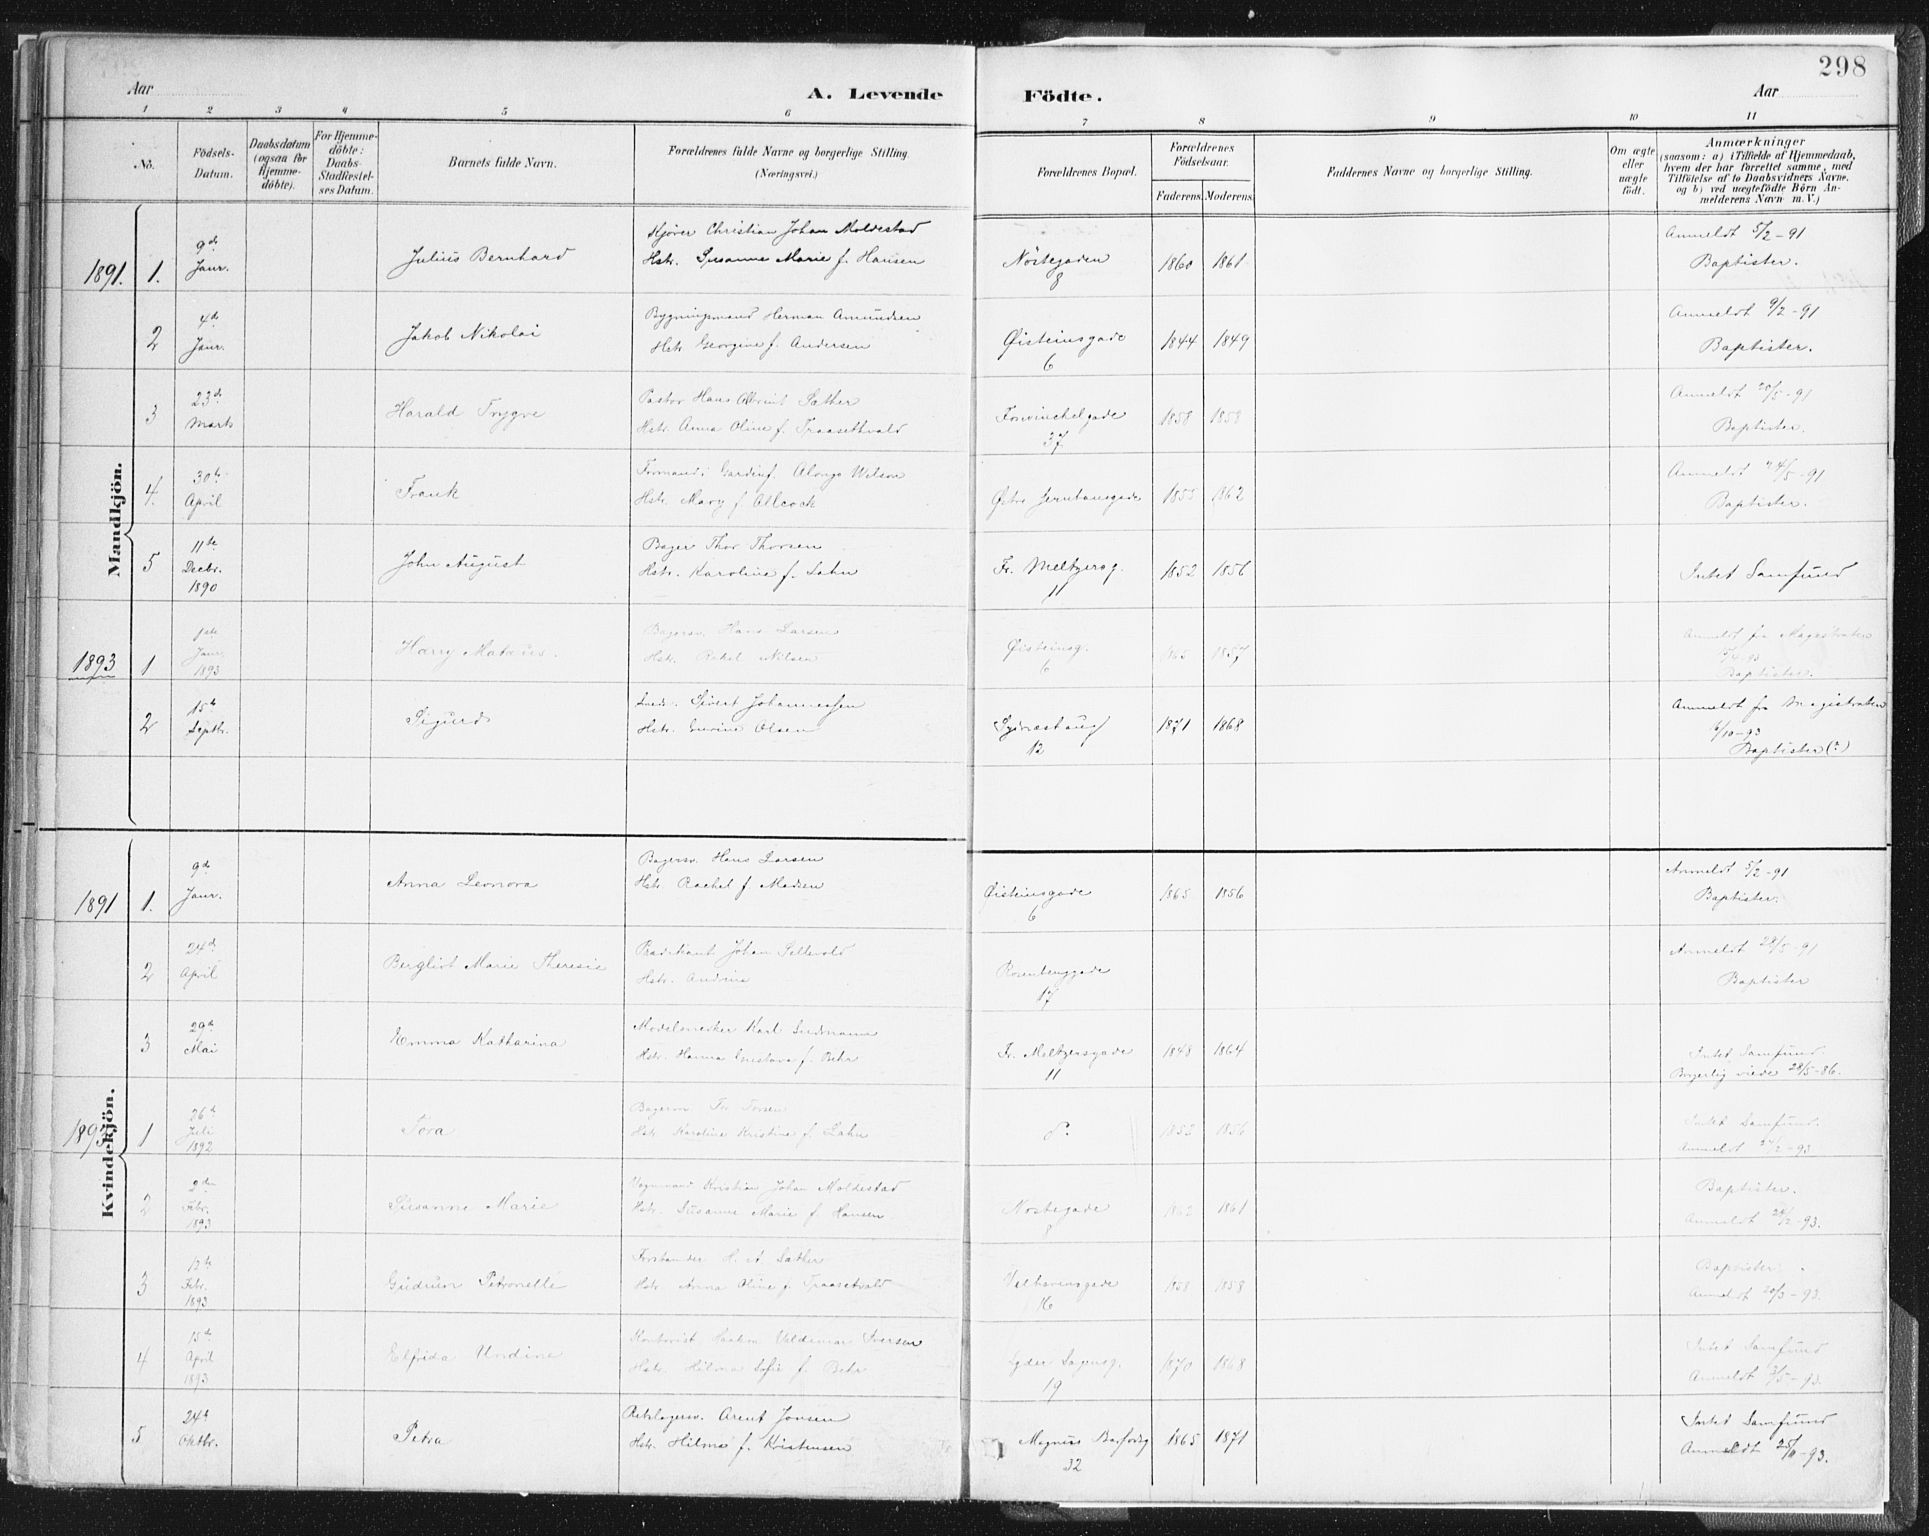 298
Aar
A. Levende
Födte.
Aar
1 2 3 4 5 6 7 8 9 10 11
No.
Födsels-
Datum.
Daabsdatum
(ogsaa for
Hjemme-
döbte).
For Hjemme-
döbte:
Daabs-
Stadfæstel-
ses Datum.
Barnets fulde Navn.
Forældrenes fulde Navne og borgerlige Stilling
(Næringsvei.)
Forældrenes Bopæl.
Forældrenes
Födselsaar.
Faderens
Moderens
Faddernes Navne og borgerlige Stilling.
Om ægte
eller
uægte
födt.
Anmærkninger
(saasom: a) i Tilfælde af Hjemmedaab,
hvem der har forrettet samme, med
Tilföielse af to Daabsvidners Navne.
og b) ved uægtefödte Börn An-
melderens Navn m. V.)
Mandkjön.
1891. 1.
9de
Janr.
Julius Bernhard
Kjører Christian Johan Moldestad
Hstr. Susanne Marie f. Hansen
Nöstegaden
8
1860 1861
Anmeldt 5/2-91
Baptister.
2
4de
Janr.
Jakob Nikolai
Bygningsmand Herman Amundsen
Hstr Georgine f. Andersen
Øisteinsgade
6
1844 1849
Anmeldt 9/2-91
Baptister.
3
23de
Marts
Harald Trygve
Pastor Hans Sæther
Hstr. Anna Oline f. Traasethvald
37
1858 1858
Anmeldt 20/5-91
Baptister.
4.
30te
April
Frank
Alonzo Wilson
Hstr. Mary f. Allcock
Østre Jernbanegade
1855 1862
Anmeldt 24/5-91
Baptister.
5
11te
Decbr.
1890
John August
Bager Thor Thorsen
Hstr. Karoline f. Lahn
Fr. Meltzersg.
11
1852 1856
Intet Samfund
1893 1
1ste
Janr.
1893
Harry
Bagersv. Hans Larsen
Hstr. Rakel Nilsen
Øisteinsg.
6
1865 1857
Anmeldt fra Magistraten
Baptister.
2
15de
Septbr.
Sigurd
Sivert Johannessen
Hstr. Olsen
12
1871 1868
Anmeldt fra Magistraten
/10-93
Baptister (?)
Kvindekjön.
1891 1.
9de
Janr.
Anna Leonora
Bagersv. Hans Larsen
Hstr. Rachel f. Madsen
Øisteinsgade
6
1865 1856
Anmeldt 5/2-91
Baptister.
2
24de
April
Bergliot Marie Theresie
Prædikant Johan Sellevold
Hstr. Andrine
Rosenberggade
17
Anmeldt 28/5-91
Baptister
3
29de
Mai
Emma Katharina
Modelsnedker Karl
Hstr. Hanna Gustava f. Behr
Fr. Meltzersgade
11
1848 1864
Intet Samfund.
Borgerlig viede 28/5-86.
1893 1
26de
Juli
1892
Tora
Bagersv. Torsen
Hstr. Karoline Kristine f. Lahn
do.
1852 1856
Intet Samfund.
Anmeldt 27/2-93
2
2den
Febr.
1893
Susanne Marie
Vognmand Kristian Johan Moldestad
Hstr. Susanne Marie f. Hansen
Nöstegade
8
1862 1861
Baptister.
Anmeldt 28/2-93.
3
12te
Febr.
1893
Gudrun Petronelle
Forstander H. A. Sæther
Hstr Anna Oline f. Traasetvald
Welhavensgade
16
1858 1858
Baptister.
Anmeldt 20/3-93.
4
15de
April
1893
Elfrida Undine
Kontorist Haakon Valdemar Iversen
Hstr. Hilma Sofie f. Behr
Lyder Sagensg.
19
1870 1868
Intet Samfund
Anmeldt 3/5-93.
5
24de
Oktbr.
Petra
Rebslagersv. Arent Jonsen
Hstr. Hilma f. Kristensen
Magnus Barfodsg
32
1865 1871
Intet Samfund
Anmeldt 25/11-93.